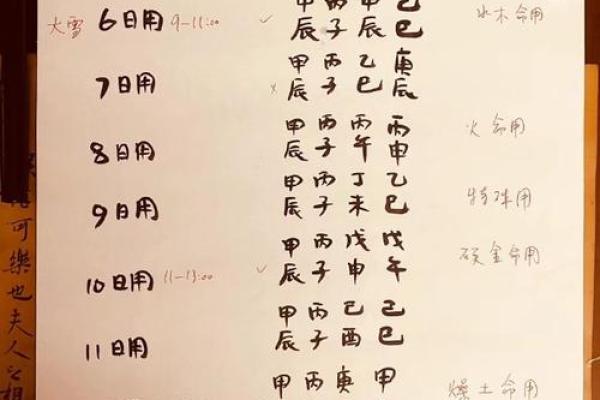 甲 丙 甲 己
大雪 6日用 9-11:00 ✓ 辰 子 辰 巳 水木命用
甲 丙 乙 庚
7日用 × 辰 子 巳 辰
甲 丙 丙 丙
8日用 辰 子 午 申 火命用
甲 丙 丁 乙
9日用 辰 子 未 巳 特殊用
甲 丙 戊 戊
10日用 11-13:00 ✓ 辰 子 申 午 金命用
甲 丙 己 己
11日用 辰 子 酉 巳
甲 丙 庚 甲 燥土命用
可樂也夫人之相